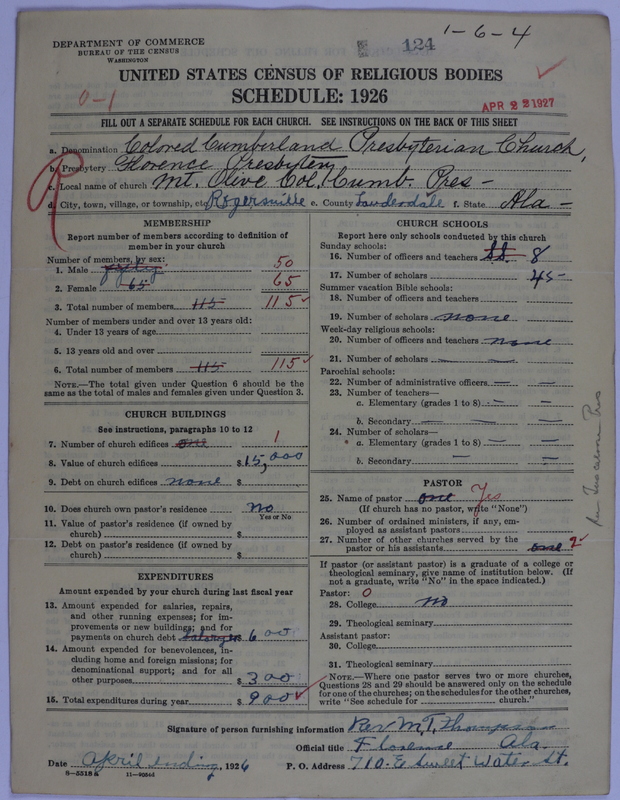 1-6-4
DEPARTMENT OF COMMERCE
BUREAU OF THE CENSUS
WASHINGTON
124
UNITED STATES CENSUS OF RELIGIOUS BODIES
SCHEDULE: 1926
0-1
APR 22 1927
FILL OUT A SEPARATE SCHEDULE FOR EACH CHURCH. SEE INSTRUCTIONS ON THE BACK OF THIS SHEET
R
a. Denomination Colored Cumberland Presbyterian Church,
b. Presbytery Florence Presbytery
c. Local name of church Mt. Olive Col. Cumb. Pres -
d. City, town, village, or township, etc. Rogersville e. County Lauderdale f. State Ala -
MEMBERSHIP
Report number of members according to definition of
member in your church
Number of members, by sex:
1. Male fifty 50
2. Female 65 65
3. Total number of members 115 115
Number of members under and over 13 years old:
4. Under 13 years of age
5. 13 years old and over
6. Total number of members 115 115
NOTE.—The total given under Question 6 should be the
same as the total of males and females given under Question 3.
CHURCH BUILDINGS
See instructions, paragraphs 10 to 12
7. Number of church edifices one 1
8. Value of church edifices $15,000
9. Debt on church edifices none $
10. Does church own pastor's residence No
Yes or No
11. Value of pastor's residence (if owned by
church) $
12. Debt on pastor's residence (if owned by
church) $
EXPENDITURES
Amount expended by your church during last fiscal year
13. Amount expended for salaries, repairs,
and other running expenses; for im-
provements or new buildings; and for
payments on church debt $ 600
14. Amount expended for benevolences, in-
cluding home and foreign missions; for
denominational support; and for all
other purposes $ 300
15. Total expenditures during year $ 900
CHURCH SCHOOLS
Report here only schools conducted by this church
Sunday schools:
16. Number of officers and teachers 8
17. Number of scholars 45
Summer vacation Bible schools:
18. Number of officers and teachers
19. Number of scholars none
Week-day religious schools:
20. Number of officers and teachers none
21. Number of scholars — —
Parochial schools:
22. Number of administrative officers — —
23. Number of teachers—
a. Elementary (grades 1 to 8) — —
b. Secondary — —
24. Number of scholars—
a. Elementary (grades 1 to 8) — —
b. Secondary — —
PASTOR
25. Name of pastor one Yes
(If church has no pastor, write "None")
26. Number of ordained ministers, if any, em-
ployed as assistant pastors
27. Number of other churches served by the
pastor or his assistants one 2
If pastor (or assistant pastor) is a graduate of a college or
theological seminary, give name of institution below. (If
not a graduate, write "No" in the space indicated.)
Pastor: 0
28. College No
29. Theological seminary
Assistant pastor:
30. College
31. Theological seminary
NOTE.—Where one pastor serves two or more churches,
Questions 28 and 29 should be answered only on the schedule
for one of the churches; on the schedules for the other churches,
write "See schedule for church."
Signature of person furnishing information Rev M.T. Thompson
Official title Florence Ala.
Date April ending, 1926 P. O. Address 710. E Sweet Water St.
8-5518a 11-9554d